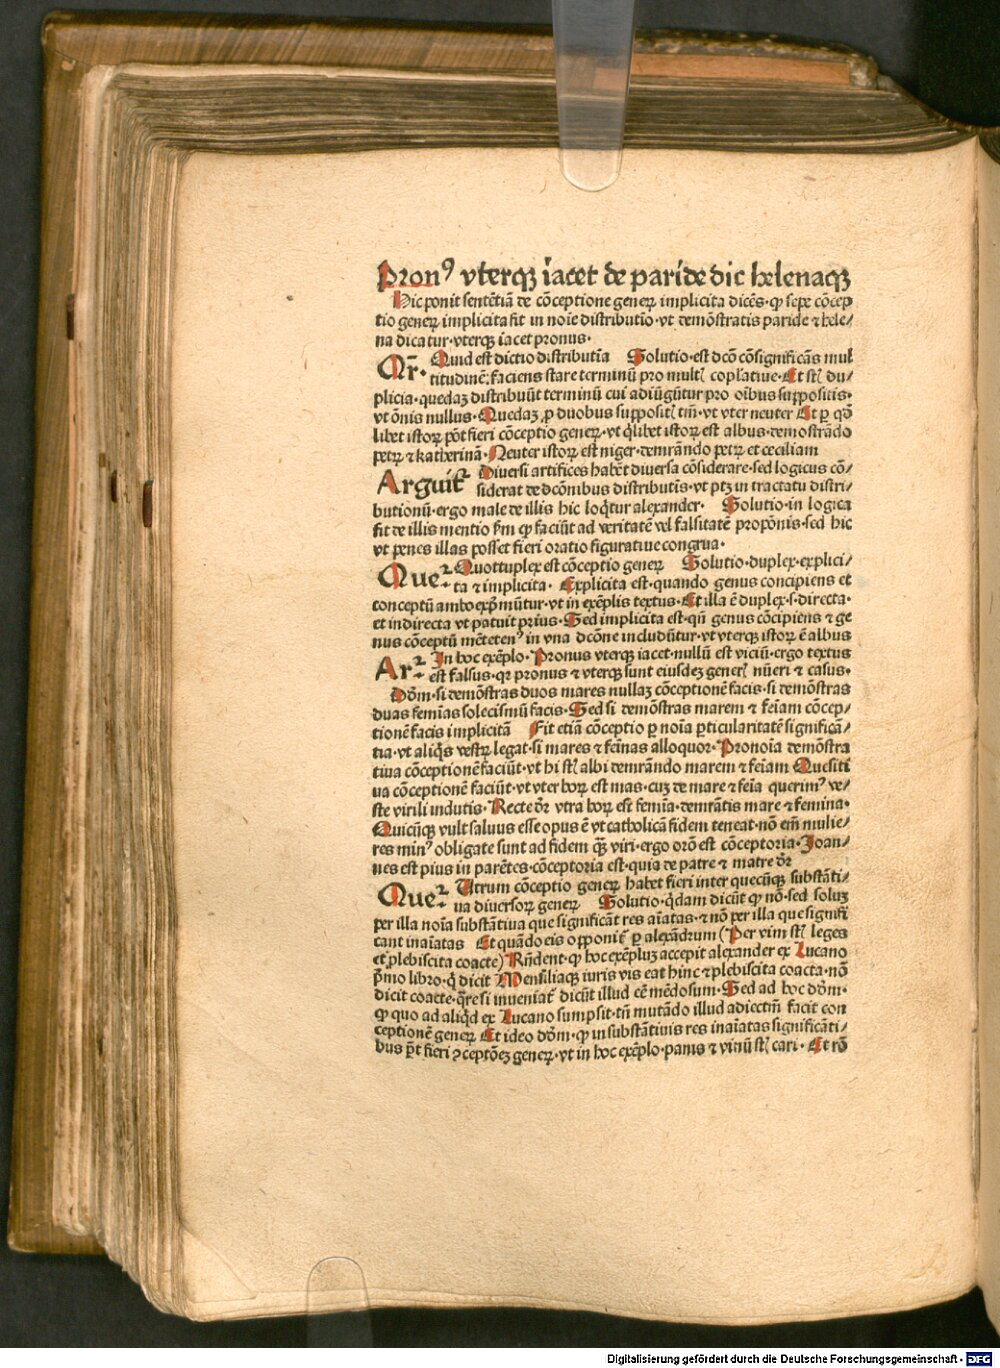 Pronꝰ vterqꝫ iacet de paride dic helenaqꝫ
Hic ponit sentētiā de cōceptione generꝝ implicita dicēs·ꝙ sepe cōcep
tio generꝝ implicita fit in noīe distributiuo·vt demōstratis paride ⁊ hele/
na dicatur·vterqꝫ iacet pronus·
Qr̄· Quid est dictio distributīa Solutio·est dcō cōsignificās mul
titudinē:faciens stare terminū pro multꝭ copl'atiue·Et stꝭ du/
plicia·quedaꝫ distribuūt terminū cui adiūgūtur pro oībus suppositis·
vt ōnis nullus·Quedaꝫ ꝓ duobus suppositꝭ tm̄·vt vter neuter Et ꝑ qō
libet istoꝝ pōt fieri cōceptio generꝝ·vt q̄libet istoꝝ est albus·demostrādo
petrꝝ ⁊ katherinā·Neuter istoꝝ est niger·demrāndo petrꝝ et ceciliam
Arguit̄ Diuersi artifices habēt diuersa cōsiderare·sed logicus cō/
siderat de dcōnibus distributiīs·vt ptꝫ in tractatu distri/
butionū·ergo male de illis hic loq̄tur alexander· Solutio·in logica
fit de illis mentio ꝑm ꝙ faciūt ad veritatē vel falsitatē propōnis·sed hic
vt penes illas posset fieri oratio figuratiue congrua·
Que᷒ Quottuplex est cōceptio generꝝ Solutio·duplex·explici/
ta ⁊ implicita· Explicita est·quando genus concipiens et
conceptū ambo exp̄mūtur·vt in exēplis textus·Et illa ē duplex·s·directa·
et indirecta vt patuit prius·Sed implicita est·qn̄ genus cōcipiens ⁊ ge
nus cōceptū mētetenꝰ in vna dcōne includūtur·vt vterqꝫ istoꝝ ē albus
Ar᷒ In hoc exēplo·Pronus vterqꝫ iacet·nullū est viciū·ergo textus
est falsus·qꝛ pronus ⁊ vterqꝫ sunt eiusdeꝫ generꝭ nūeri ⁊ casus·
Dōm·si demōstras duos mares nullaꝫ cōceptionē facis·si demōstras
duas femīas solecismū facis·Sed si demōstras marem ⁊ feīam cōcep/
tionē facis implicitā Fit etiā cōceptio ꝑ noīa ꝑticularitatē significā/
tia·vt aliq̄s vestrꝝ legat·si mares ⁊ feīnas alloquor·Pronoīa demōstra
tiua cōceptionē faciūt·vt hi stꝭ albi demrāndo marem ⁊ feīam Quesiti
ua cōceptionē faciūt·vt vter hoꝝ est mas·cuꝫ de mare ⁊ feīa querimꝰ ve/
ste virili indutis·Recte ōr vtra hoꝝ est femīa·demrātis mare ⁊ femina·
Quicūqꝫ vult saluus esse opus ē vt catholicā fidem teneat·nō em̄ mulie/
res minꝰ obligate sunt ad fidem qꝫ viri·ergo orō est cōceptoria·Joan/
nes est pius in parētes·cōceptoria est·quia de patre ⁊ matre ōr
Que᷒ Utrum cōceptio generꝝ habet fieri inter quecūqꝫ substāti/
ua diuersoꝝ generꝝ Solutio·q̄dam dicūt ꝙ nō·sed soluꝫ
per illa noīa substātiua que significāt res aīatas·⁊ nō per illa que signifi
cant inaīatas Et quādo eis opponit̄ ꝑ alexādrum (Per vim stꝭ leges
et plebiscita coacte) Rn̄dent·ꝙ hoc exēpluꝫ accepit alexander ex Lucano
p̄mo libro·q̄ dicit Mensiliaqꝫ iuris vis eat hinc ⁊ plebiscita coacta·nō
dicit coacte·q̄re si inueniat̄ dicūt illud eē mēdosum·Sed ad hoc dōm·
ꝙ quo ad aliq̄d ex Lucano sumpsit·tn̄ mutādo illud adiectm̄ facit con
ceptionē generꝝ Et ideo dōm·ꝙ in substātiuis res inaīatas significāti/
bus p̄t fieri ꝯceptōeꝫ generꝝ·vt in hoc exēplo·panis ⁊ vinū stꝭ cari· Et rō
Digitalisierung gefördert durch die Deutsche Forschungsgemeinschaft - DFG